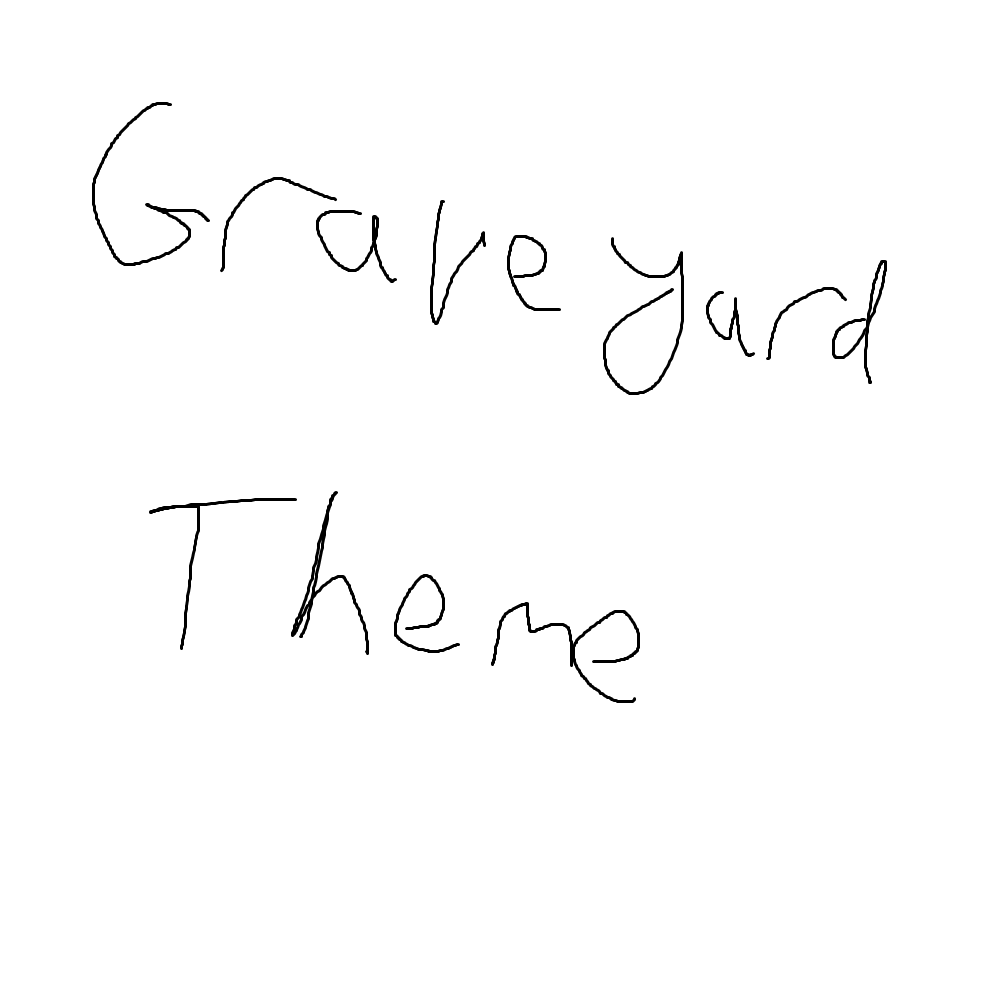 Graveyard
Theme